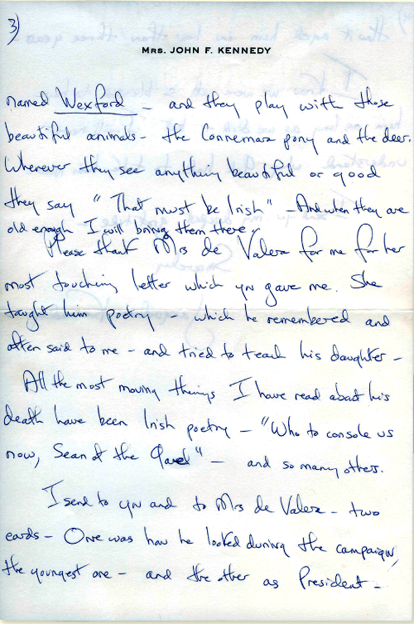 3)
MRS. JOHN F. KENNEDY
named Wexford – and they play with those
beautiful animals – the Connemara pony and the deer.
Wherever they see anything beautiful or good
they say "That must be Irish" – And when they are
old enough I will bring them there.
Please thank Mrs de Valera for me for her
most touching letter which you gave me. She
taught him poetry – which he remembered and
often said to me – and tried to teach his daughter –
All the most moving things I have read about his
death have been Irish poetry – "Who to console us
now, Sean of the" – and so many others.
I send to you and to Mrs de Valera – two
cards – One was how he looked during the campaign,
the youngest one – and the other as President –